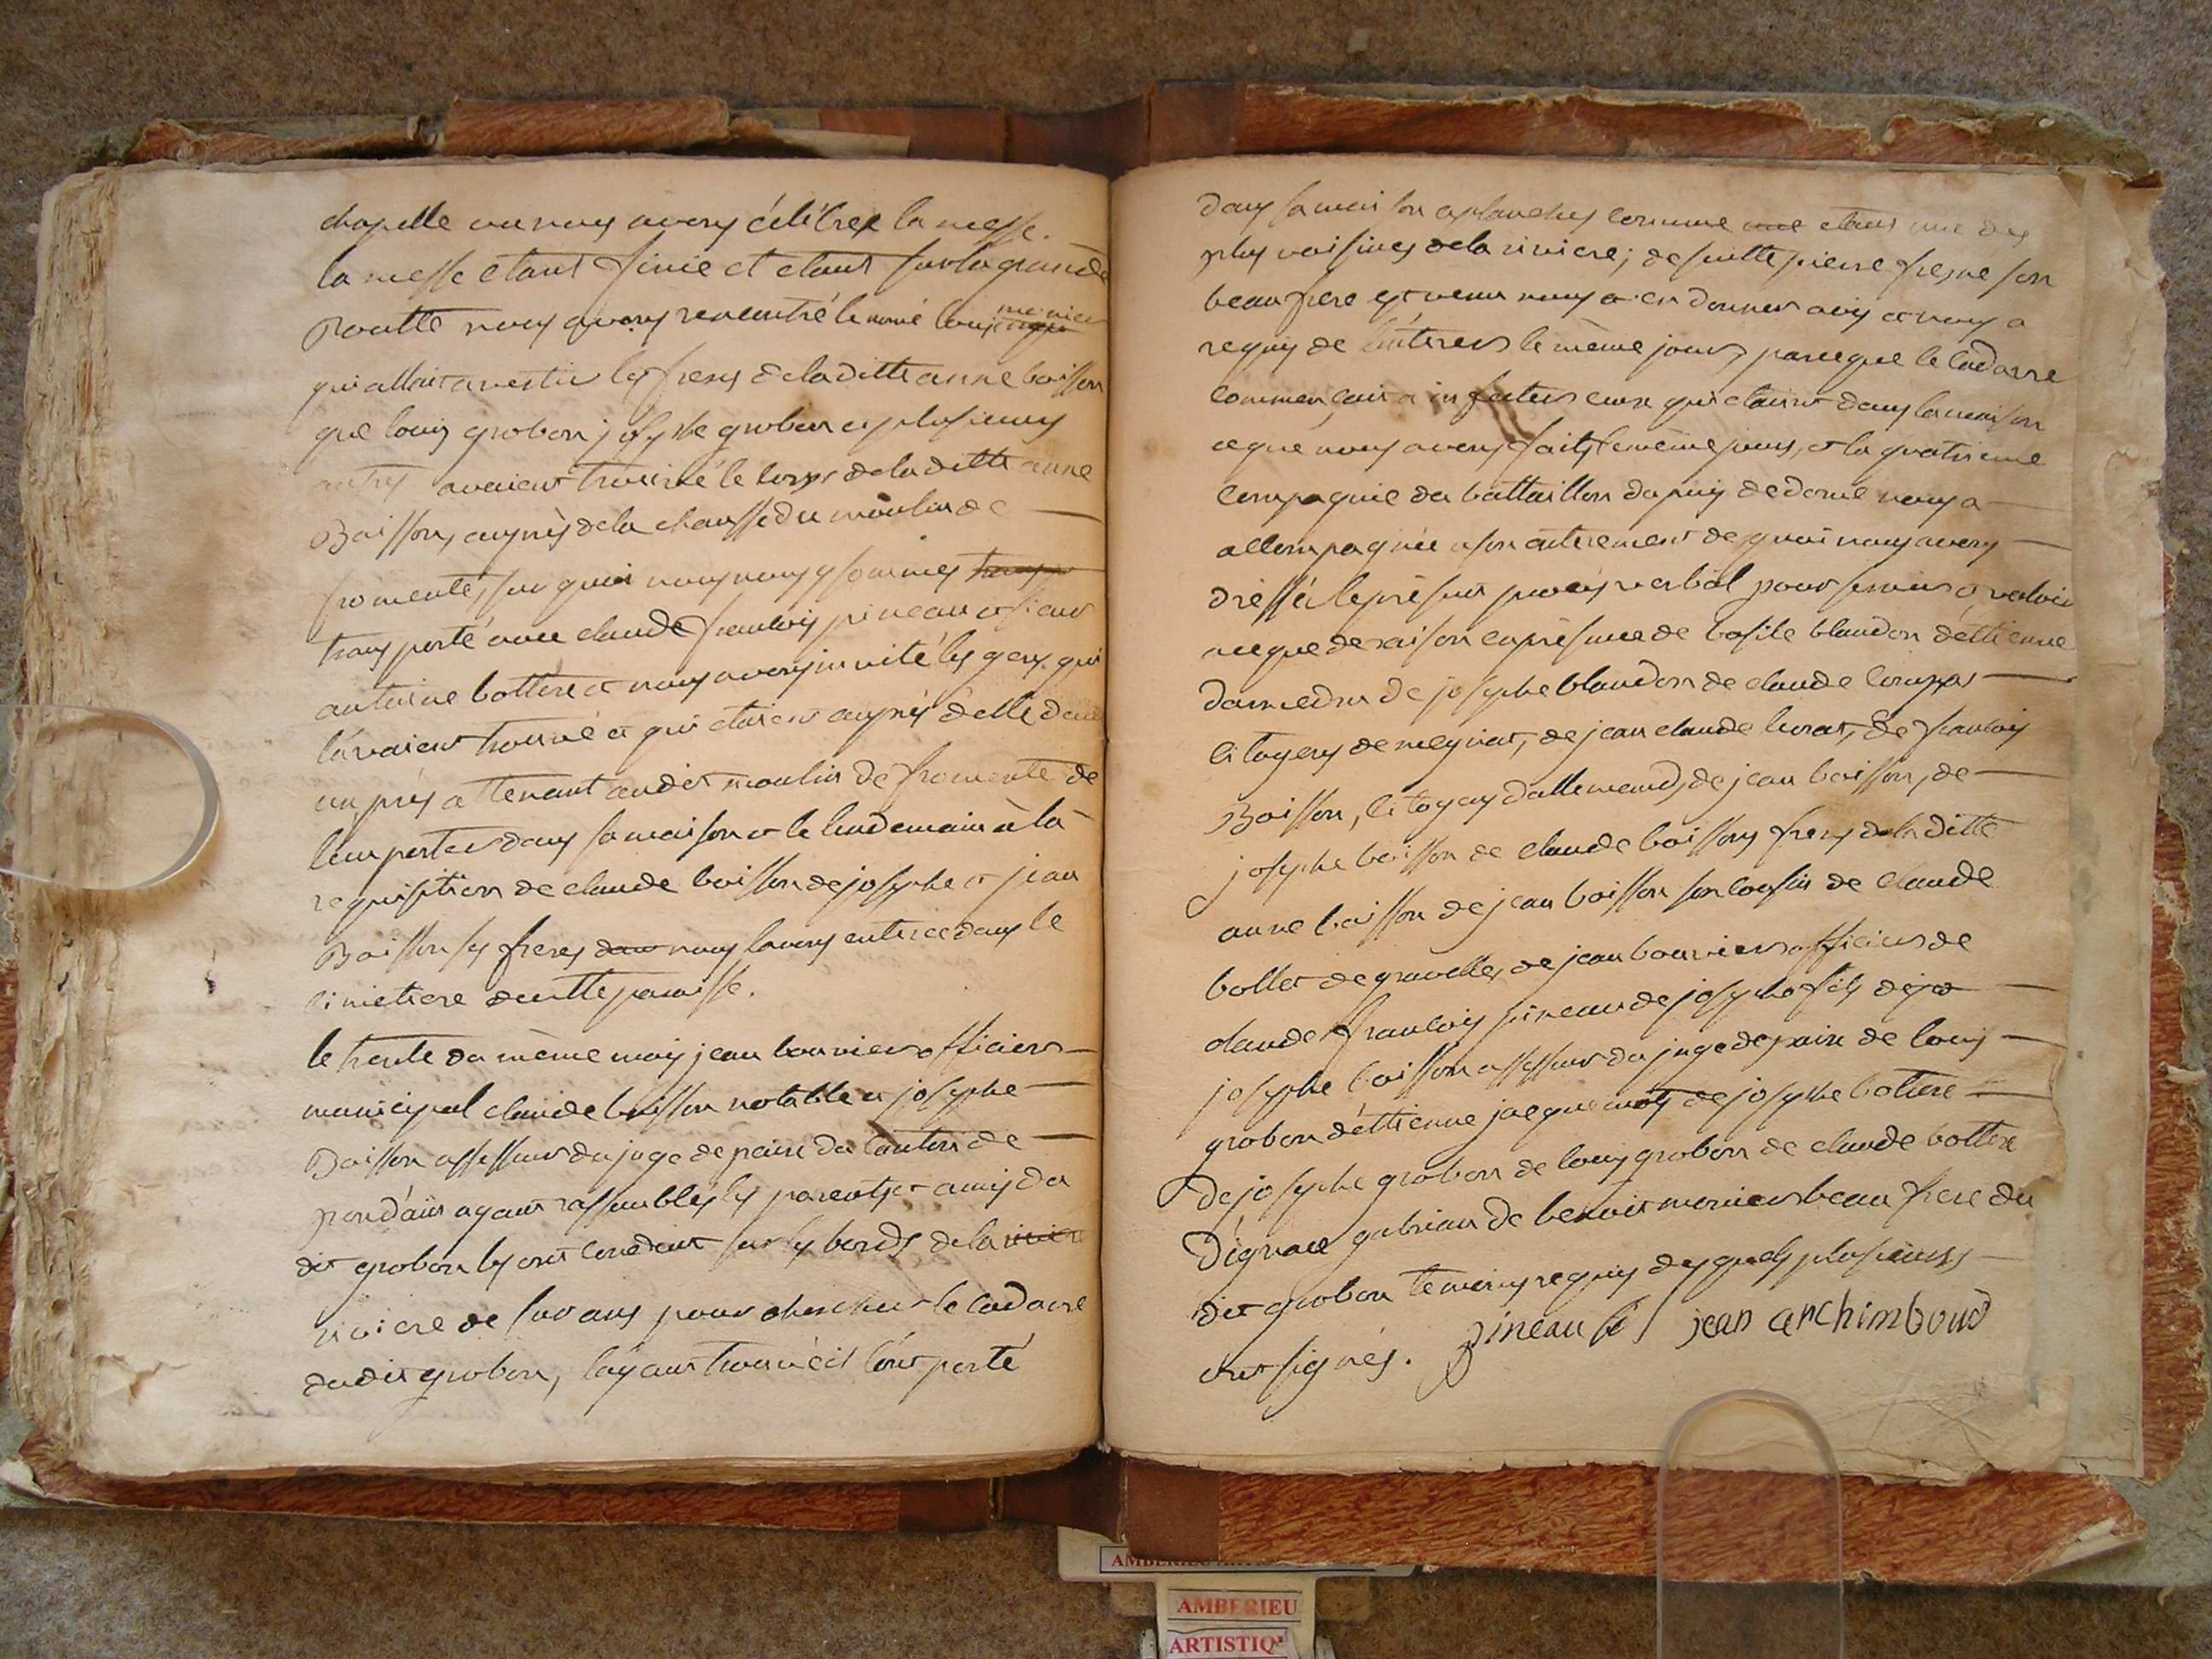 chapelle ou nous avons célébrer la messe.
la messe etant finie et etant sur la grande
Routte nous avons rencontré le nomé louis monier
qui allait avertir les freres de laditte anne boisson
que louis grobon josephe grobon et plusieurs
autres avaient trouvé le corps de laditte anne
Boisson, auprès de la chausse du moulin de
fromente, sur quoi nous nous y sommes
transporté avec claude francois pineau et sieur
antoine bottere et nous avons invité les gens qui
l'avaient trouvé et qui etaient auprès d'elle dans
un prés attenant audit moulin de fromente de
l'emporter dans sa maison et le lendemain à la
requisition de claude boisson de josephe et jean
Boisson ses freres nous l'avons enterée dans le
cimetiere de cette paroisse.
le trente du mème mois jean bouvier officier
municipal claude boisson notable et josephe
Boisson assesseur du juge de paix du canton de
pondain ayant rassemblés les parents et amis du
dit grobon les ont conduit sur les bords de la
riviere de surans pour chercher le cadavre
dudit grobon, l'ayant trouvé il l'ont porté
dans sa maison a planches comme etant une des
plus voisines de la riviere; de suitte pierre fresne son
beau frere est venu nous en donner avis et nous a
requis de l'enterrer le mème jour, parceque le cadavre
commençait a infecter ceux qui etaient dans la maison
ce que nous avons fait le mème jour, et la quatrieme
compagnie du battaillon du puis de dome nous a
accompagnée a son enterement de quoi nous avons
dressé le présent procés verbal pour servir et valoir
ce que de raison en présence de basile blandon d'ettienne
damedor de josephe blandon de claude compas
citoyens de neyriat, de jean claude livrat, de francois
Boisson, citoyens d'allemend, de jean boisson, de
josephe boisson de claude boisson freres de laditte
anne boisson de jean boisson son cousin de claude
bollet de gravelles, de jean bouvier officier de
claude francois pineau de josephe fils de
josephe boisson assesseur du juge de paix de louis
grobon d'ettienne jacquemot de josephe botiere
de josephe grobon de louis grobon de claude bottere
d'ignace gabriau de benoit monier beau frere du
dit grobon temoins requis desquels plusieurs
ont signés. pineau jean archimboud
AMBERIEU
ARTISTIQ